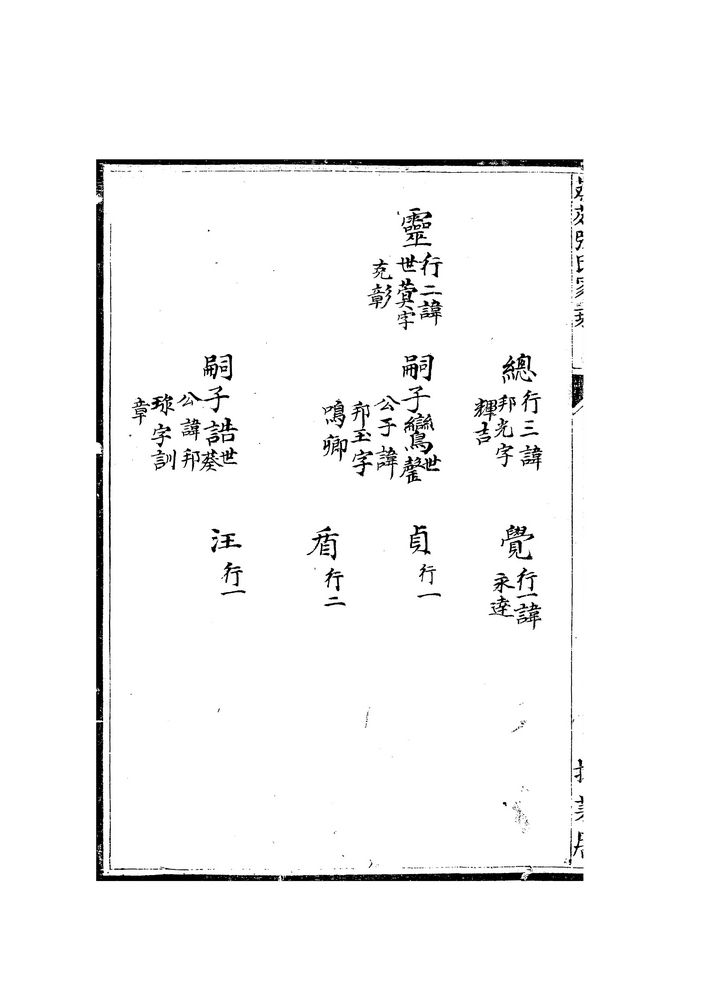 靈
行二諱
世蓂字
充彰
總
行三諱
邦光字
輝吉
嗣子鸞世
罄
公子諱
邦玉字
鳴卿
嗣子誥世
葵
公諱邦
字訓
章
覺
行一諱
永達
貞
行一
行二
汪
行一
張氏家